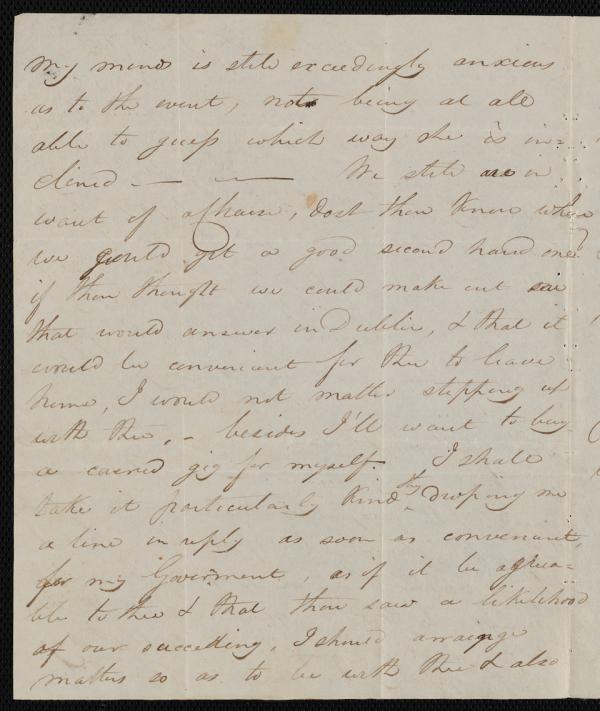 My mind is still exceedingly anxious
as to the event, not being at all
able to guess which way she is in=
clined — — We still are in
want of a chaise, dost thou know where
we could get a good second hand one?
if thou thought we could make out one
that would answer in Dublin, & that it
would be convenient for thee to leave
home, I would not matter stepping up
with thee, - besides I'll want to buy
a gig for myself. I shall
take it particularly kind thy droping me
a line in reply as soon as convenient,
for my Goverment, as if it be agrea=
ble to thee & that thou saw a likelihood
of our succeeding, I should arrainge
matters so as to be with thee & also